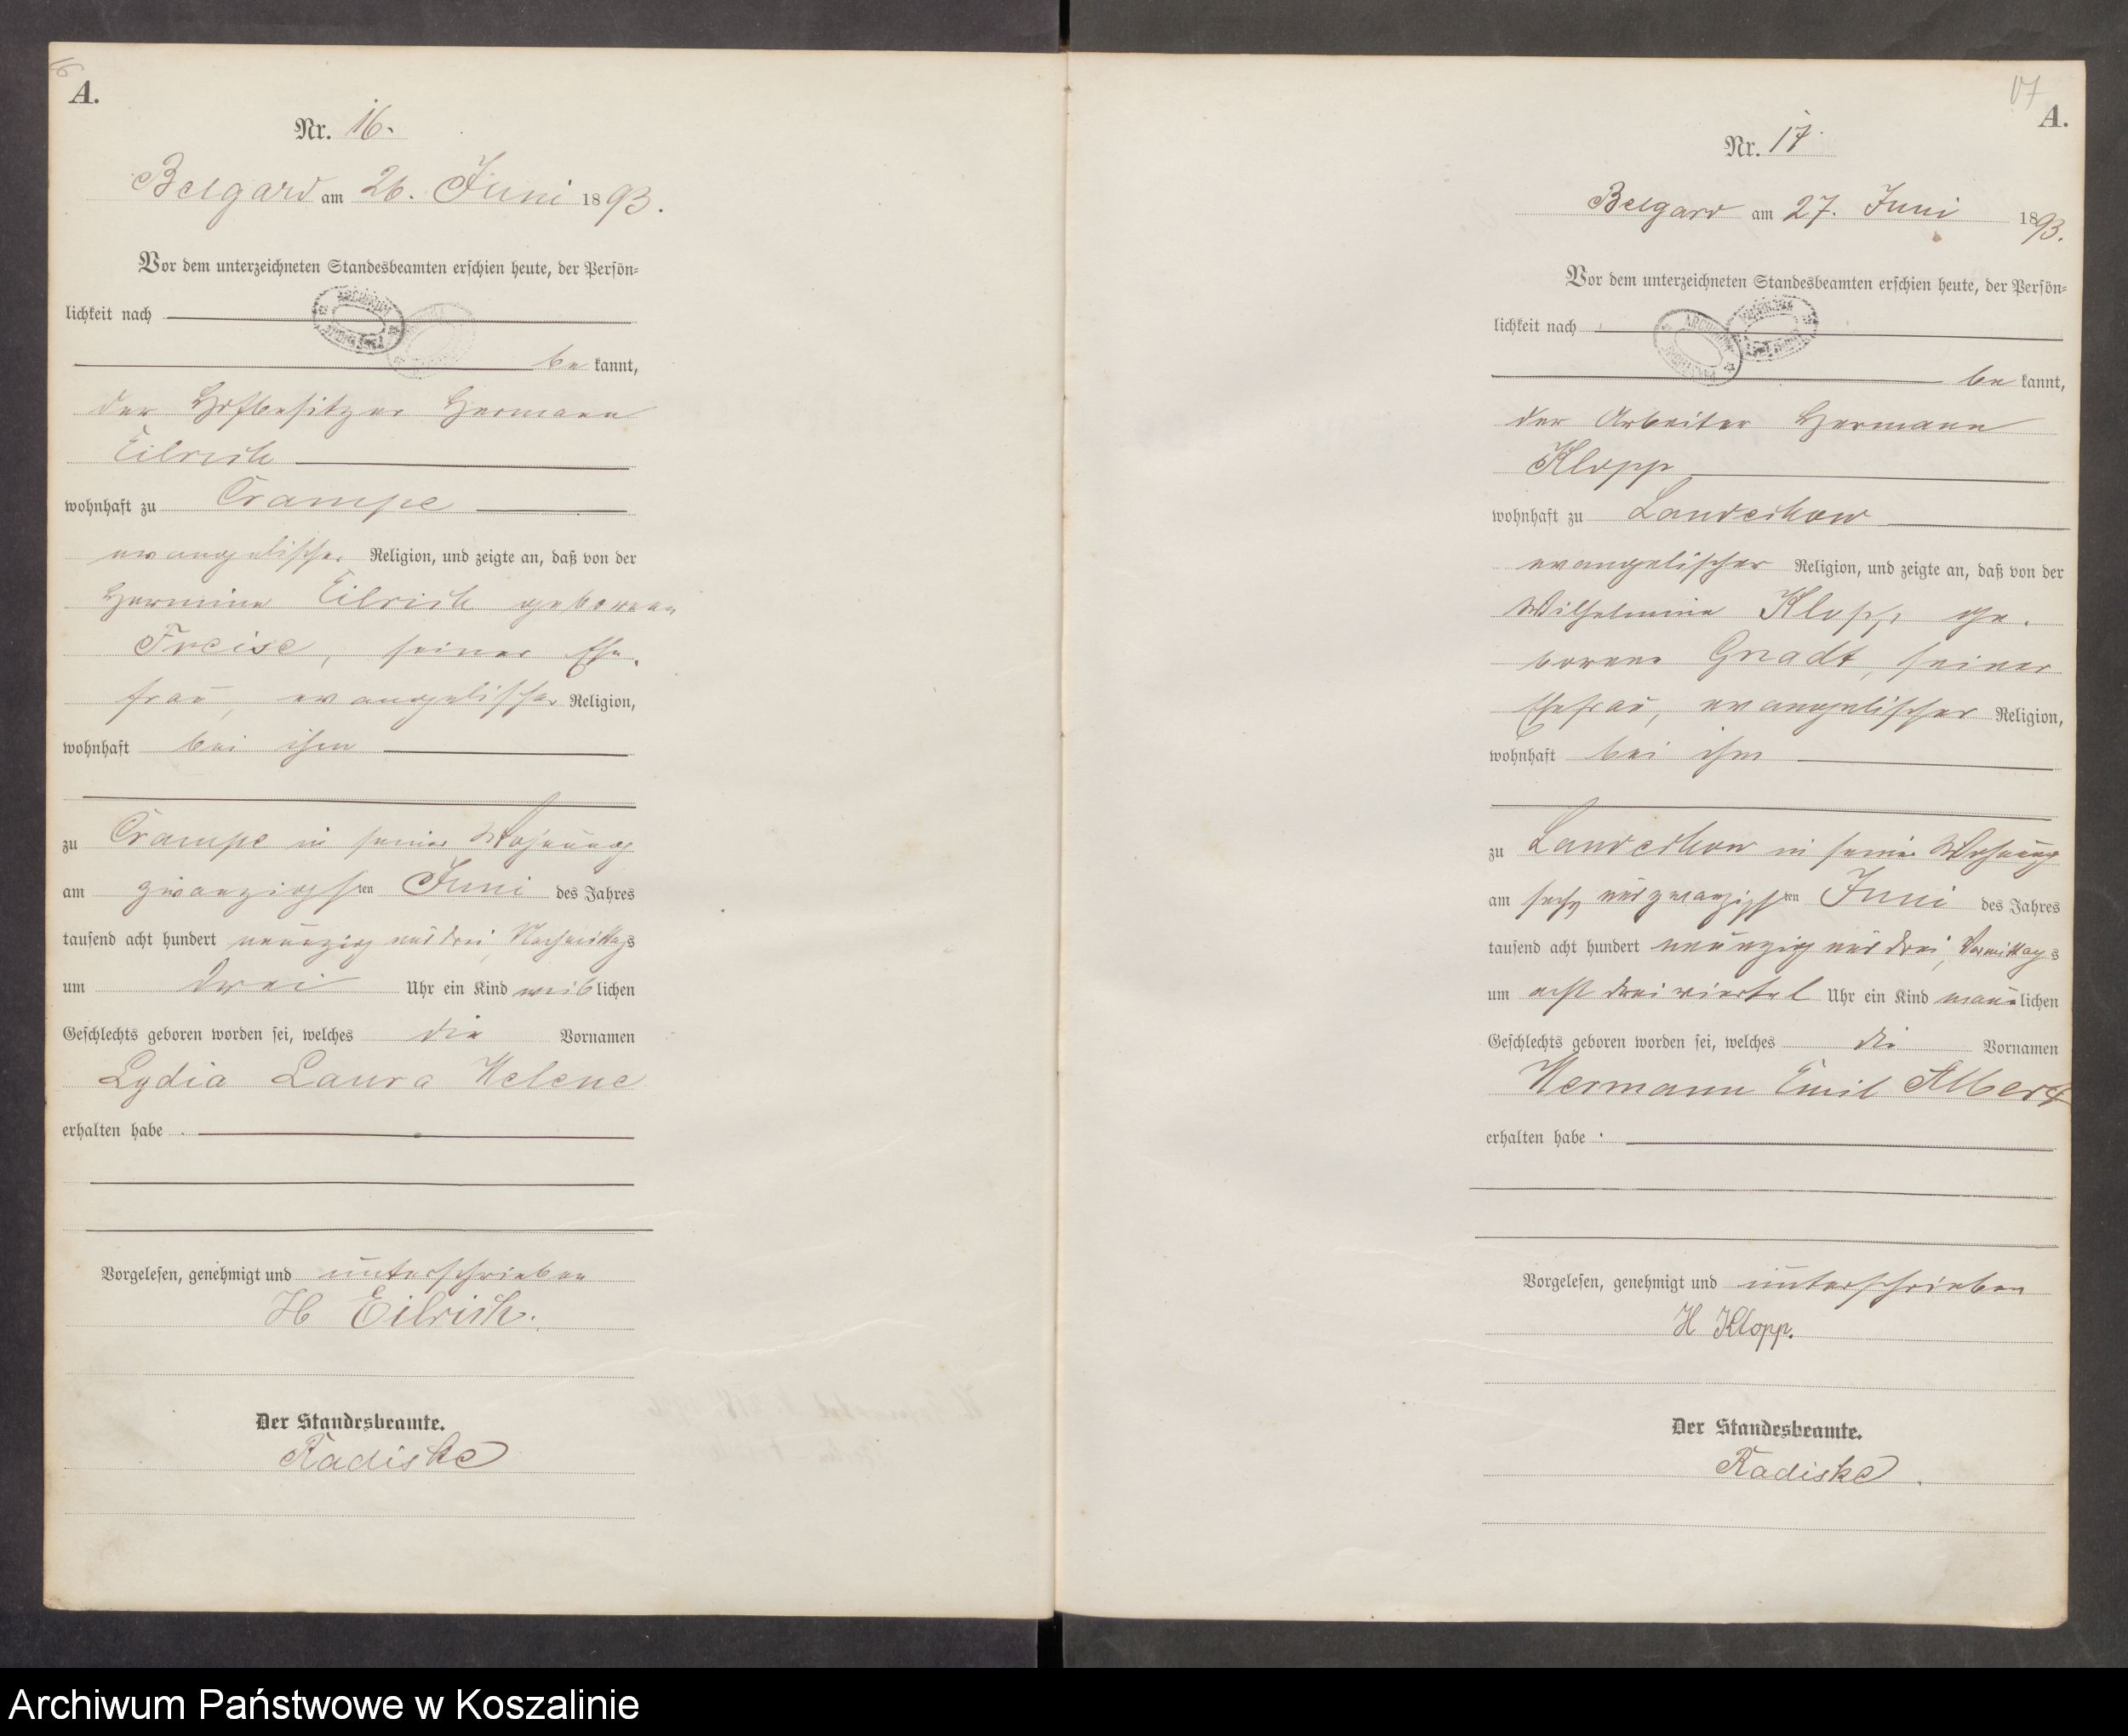 16
A.
Nr. 16.
Belgard am 26. Juni 1893.
Vor dem unterzeichneten Standesbeamten erschien heute, der Persön-
lichkeit nach
be kannt,
der Hofbesitzer Hermann
Eilrich
wohnhaft zu Crampe
evangelischer Religion, und zeigte an, daß von der
Hermine Eilrich geborenen
Freise, seiner Ehe-
frau, evangelischer Religion,
wohnhaft bei ihm
zu Crampe in seiner Wohnung
am zwanzigsten Juni des Jahres
tausend acht hundert neunzig und drei, Nachmittags
um drei Uhr ein Kind weiblichen
Geschlechts geboren worden sei, welches die Vornamen
Lydia Laura Helene
erhalten habe.
Vorgelesen, genehmigt und unterschrieben
H Eilrich.
Der Standesbeamte.
Radiske
17
A.
Nr. 17.
Belgard am 27. Juni 1893.
Vor dem unterzeichneten Standesbeamten erschien heute, der Persön-
lichkeit nach
be kannt,
der Arbeiter Hermann
Klopp
wohnhaft zu Landechow
evangelischer Religion, und zeigte an, daß von der
Wilhelmine Klopp ge-
borene Gnadt, seiner
Ehefrau, evangelischer Religion,
wohnhaft bei ihm
zu Landechow in seiner Wohnung
am sechs und zwanzigsten Juni des Jahres
tausend acht hundert neunzig und drei, Vormittags
um acht dreiviertel Uhr ein Kind männlichen
Geschlechts geboren worden sei, welches die Vornamen
Hermann Emil Albert
erhalten habe.
Vorgelesen, genehmigt und unterschrieben
H Klopp.
Der Standesbeamte.
Radiske.
Archiwum Państwowe w Koszalinie